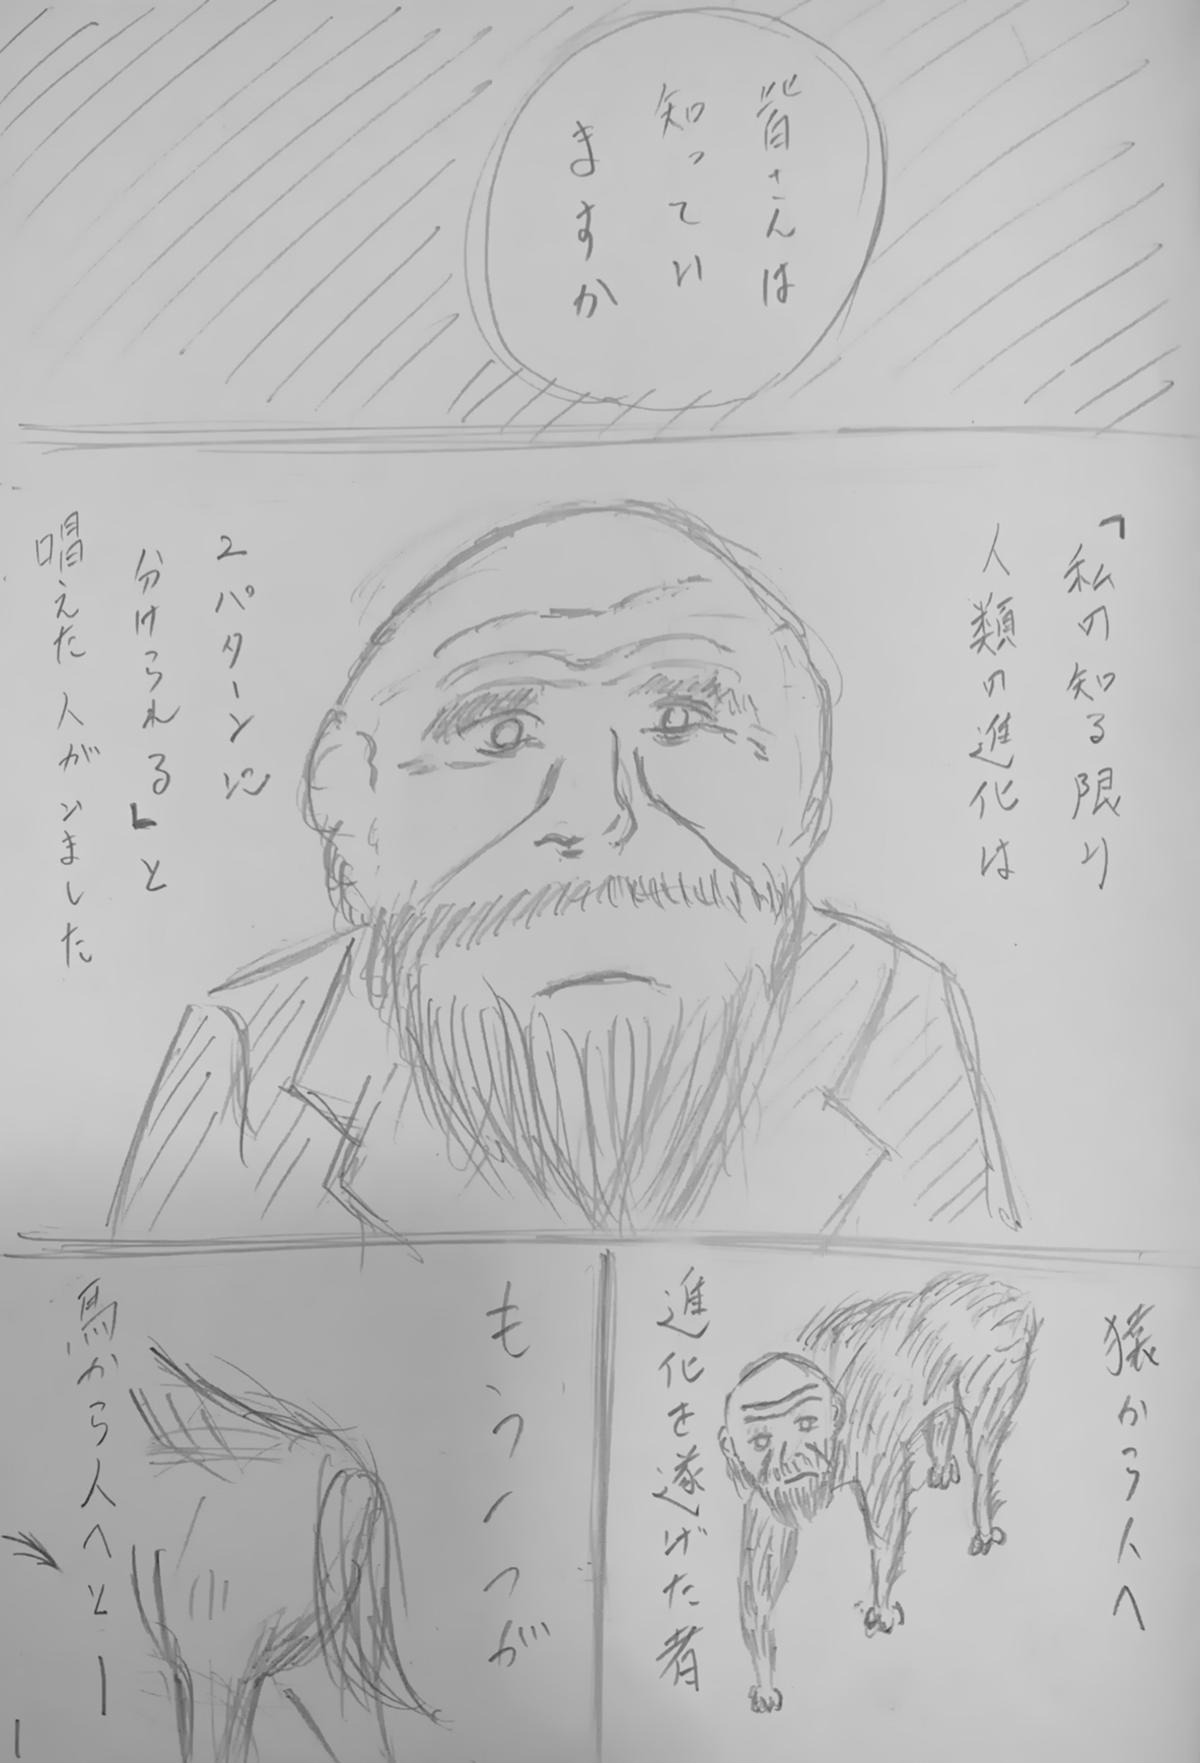 皆さんは
知ってい
ますか
「私の知る限り
人類の進化は
2パターンに
分けられる」と
唱えた人がいました
猿から人へ
進化を遂げた者
もう一つが
馬から人へとー
1